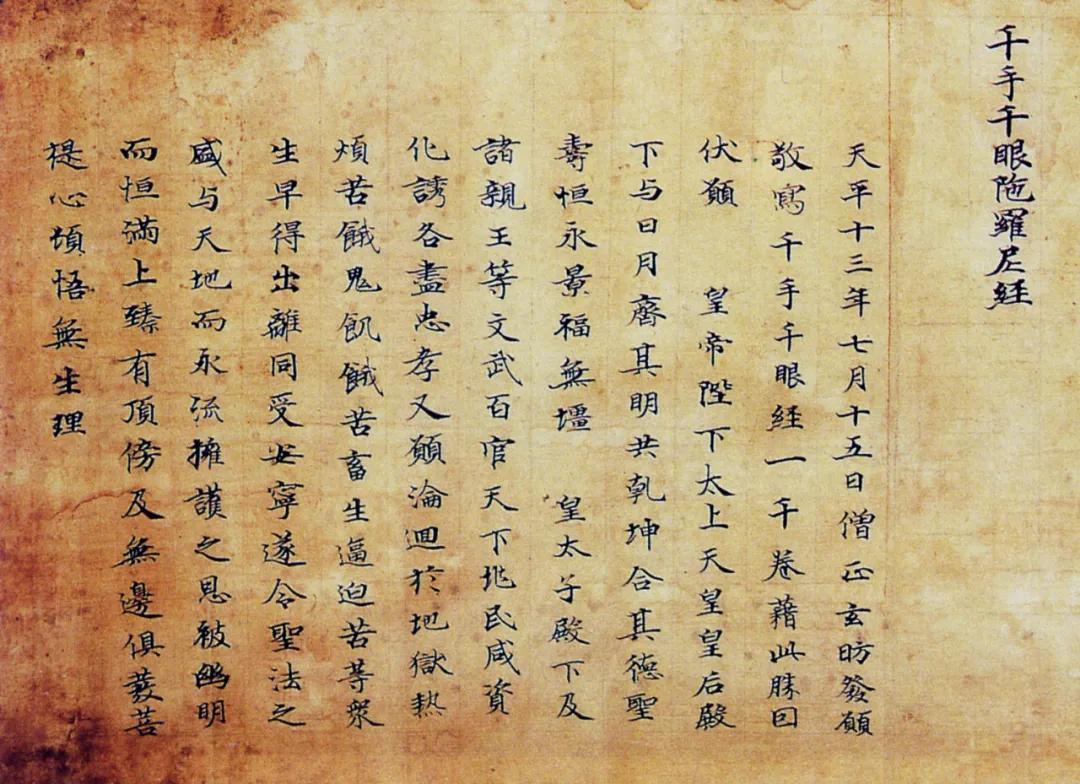 千手千眼陁羅尼経
天平十三年七月十五日僧正玄昉發願
敬寫千手千眼経一千卷藉此勝因
伏願 皇帝陛下太上天皇皇后殿
下与日月齊其明共乹坤合其德聖
壽恒永景福無壃 皇太子殿下及
諸親王等文武百官天下兆民咸資
化誘各盡忠孝又願淪迴於地獄熱
煩苦餓鬼飢餓苦畜生逼迫苦等衆
生早得出離同受安寧遂令聖法之
盛与天地而永流擁護之恩被幽明
而恒滿上臻有頂傍及無邊俱發菩
提心頓悟無生理